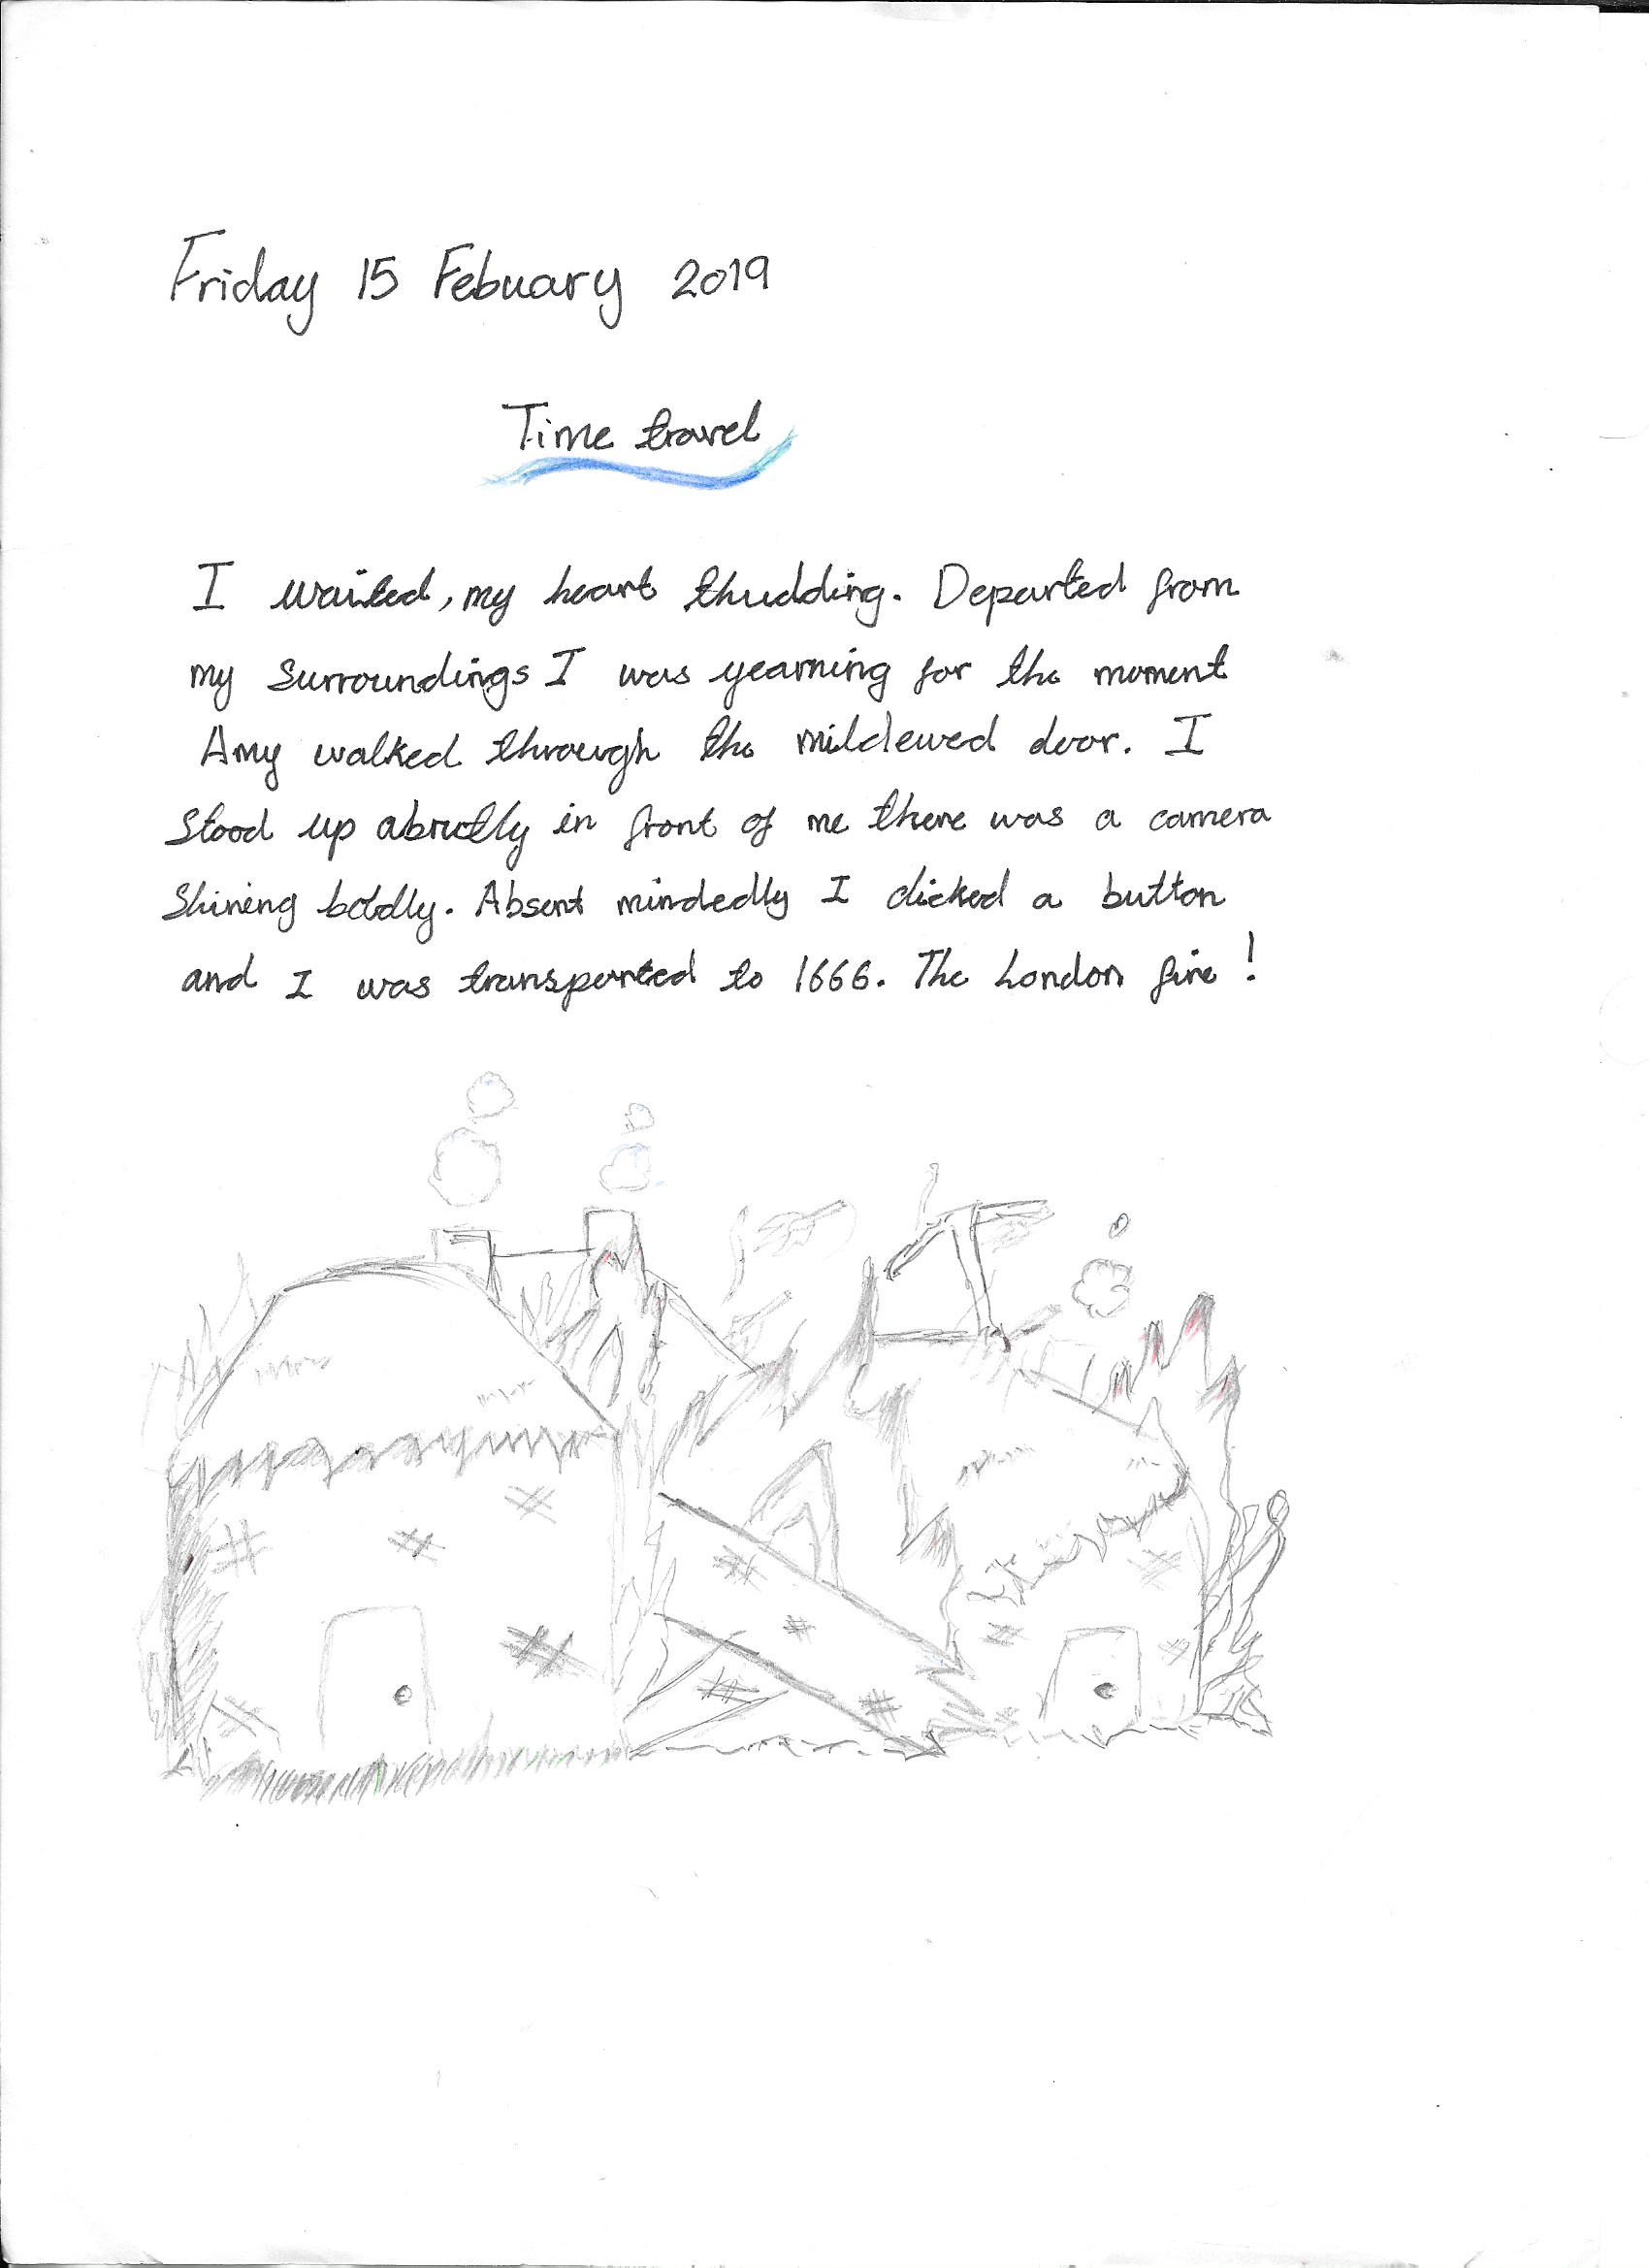 Friday 15 Febuary 2019
Time travel
I waited, my heart thudding. Departed from
my surroundings I was yearning for the moment
Amy walked through the mildewed door. I
stood up abrutly in front of me there was a camera
shining boldly. Absent mindedly I clicked a button
and I was transported to 1666. The London fire!